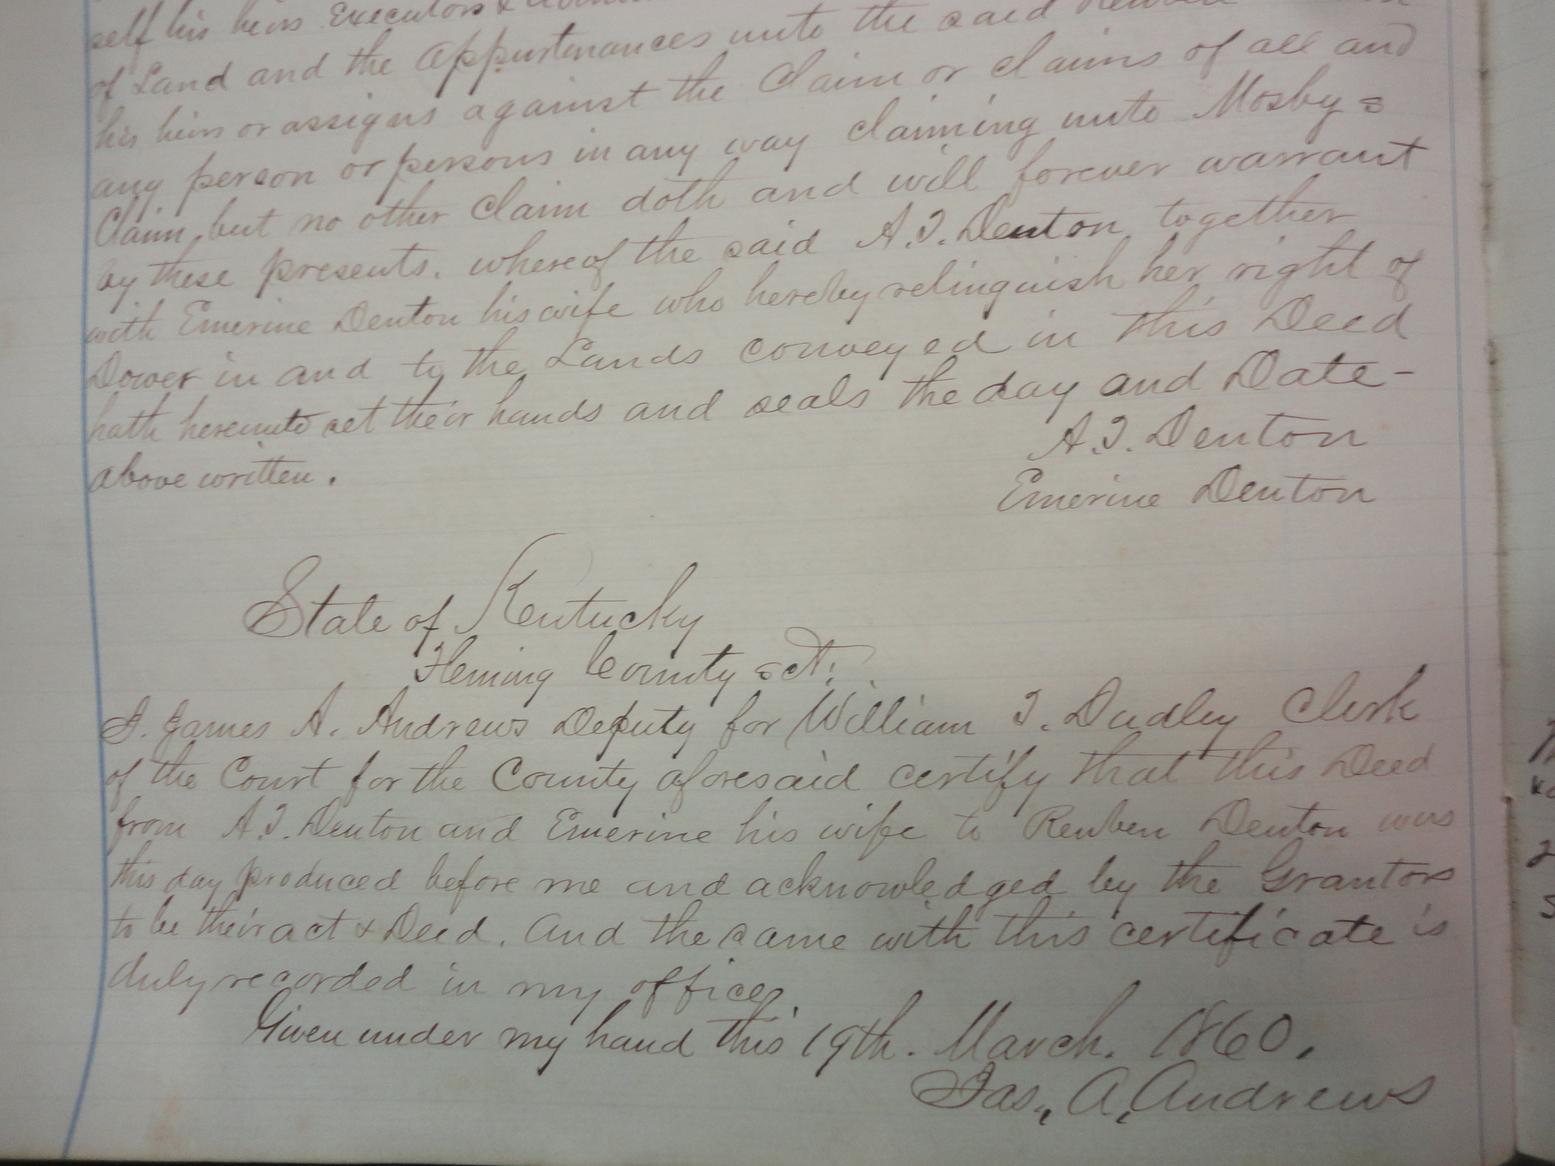 self his heirs Executors &
of Land and the Appurtinances unto the said Reuben
his heirs or assigns against the Claim or claims of all and
any person or persons in any way claiming unto Mosbys
Claim, but no other Claim doth and will forever warrant
by these presents. whereof the said A. J. Denton, together
with Emerine Denton his wife who hereby relinquish her right of
Dower in and to the Lands conveyed in this Deed
hath hereunto set their hands and seals the day and Date-
above written.
A. J. Denton
Emerine Denton
State of Kentucky
Fleming County sct.
I. James A. Andrews Deputy for William T. Dudley Clerk
of the Court for the County aforesaid certify that this Deed
from A. J. Denton and Emerine his wife to Reuben Denton was
this day produced before me and acknowledged by the Grantors
to be their act & Deed. And the same with this certificate is
duly recorded in my office.
Given under my hand this 19th. March. 1860.
Jas. A. Andrews